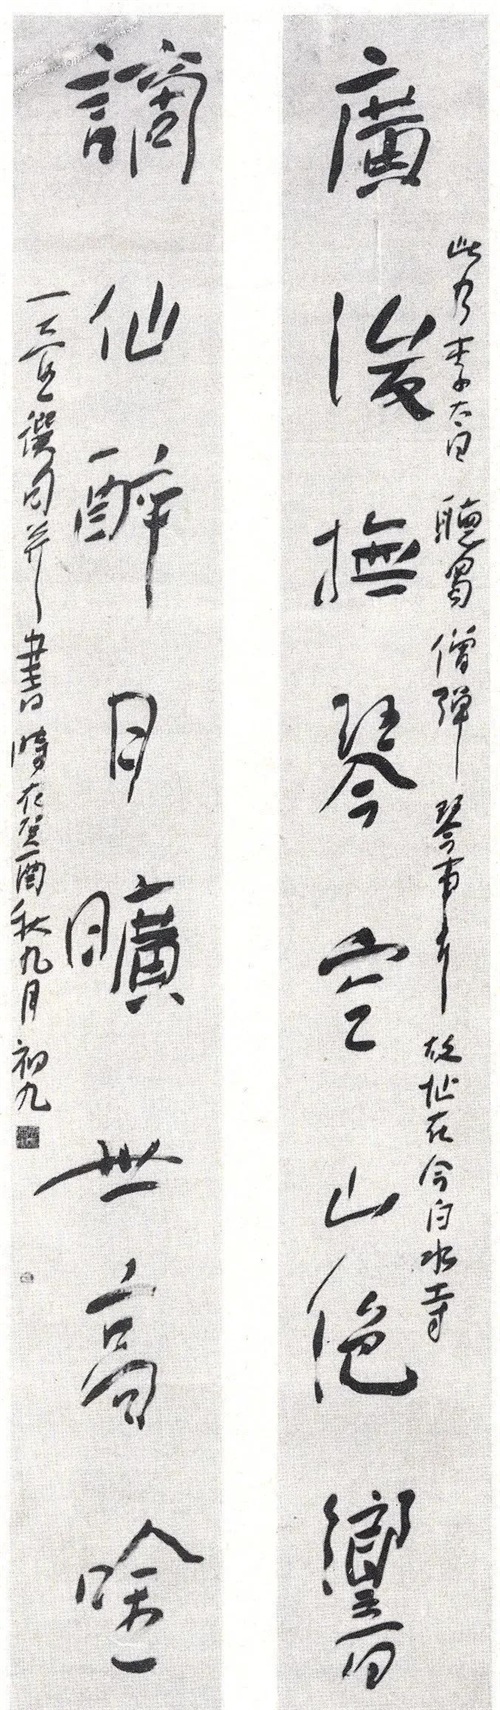 廣浚撫琴空山絕響
此乃李太白聽蜀僧彈琴事耳故址在今白水寺
謫仙醉月曠世高唫
撰句并書時在癸酉秋九月初九